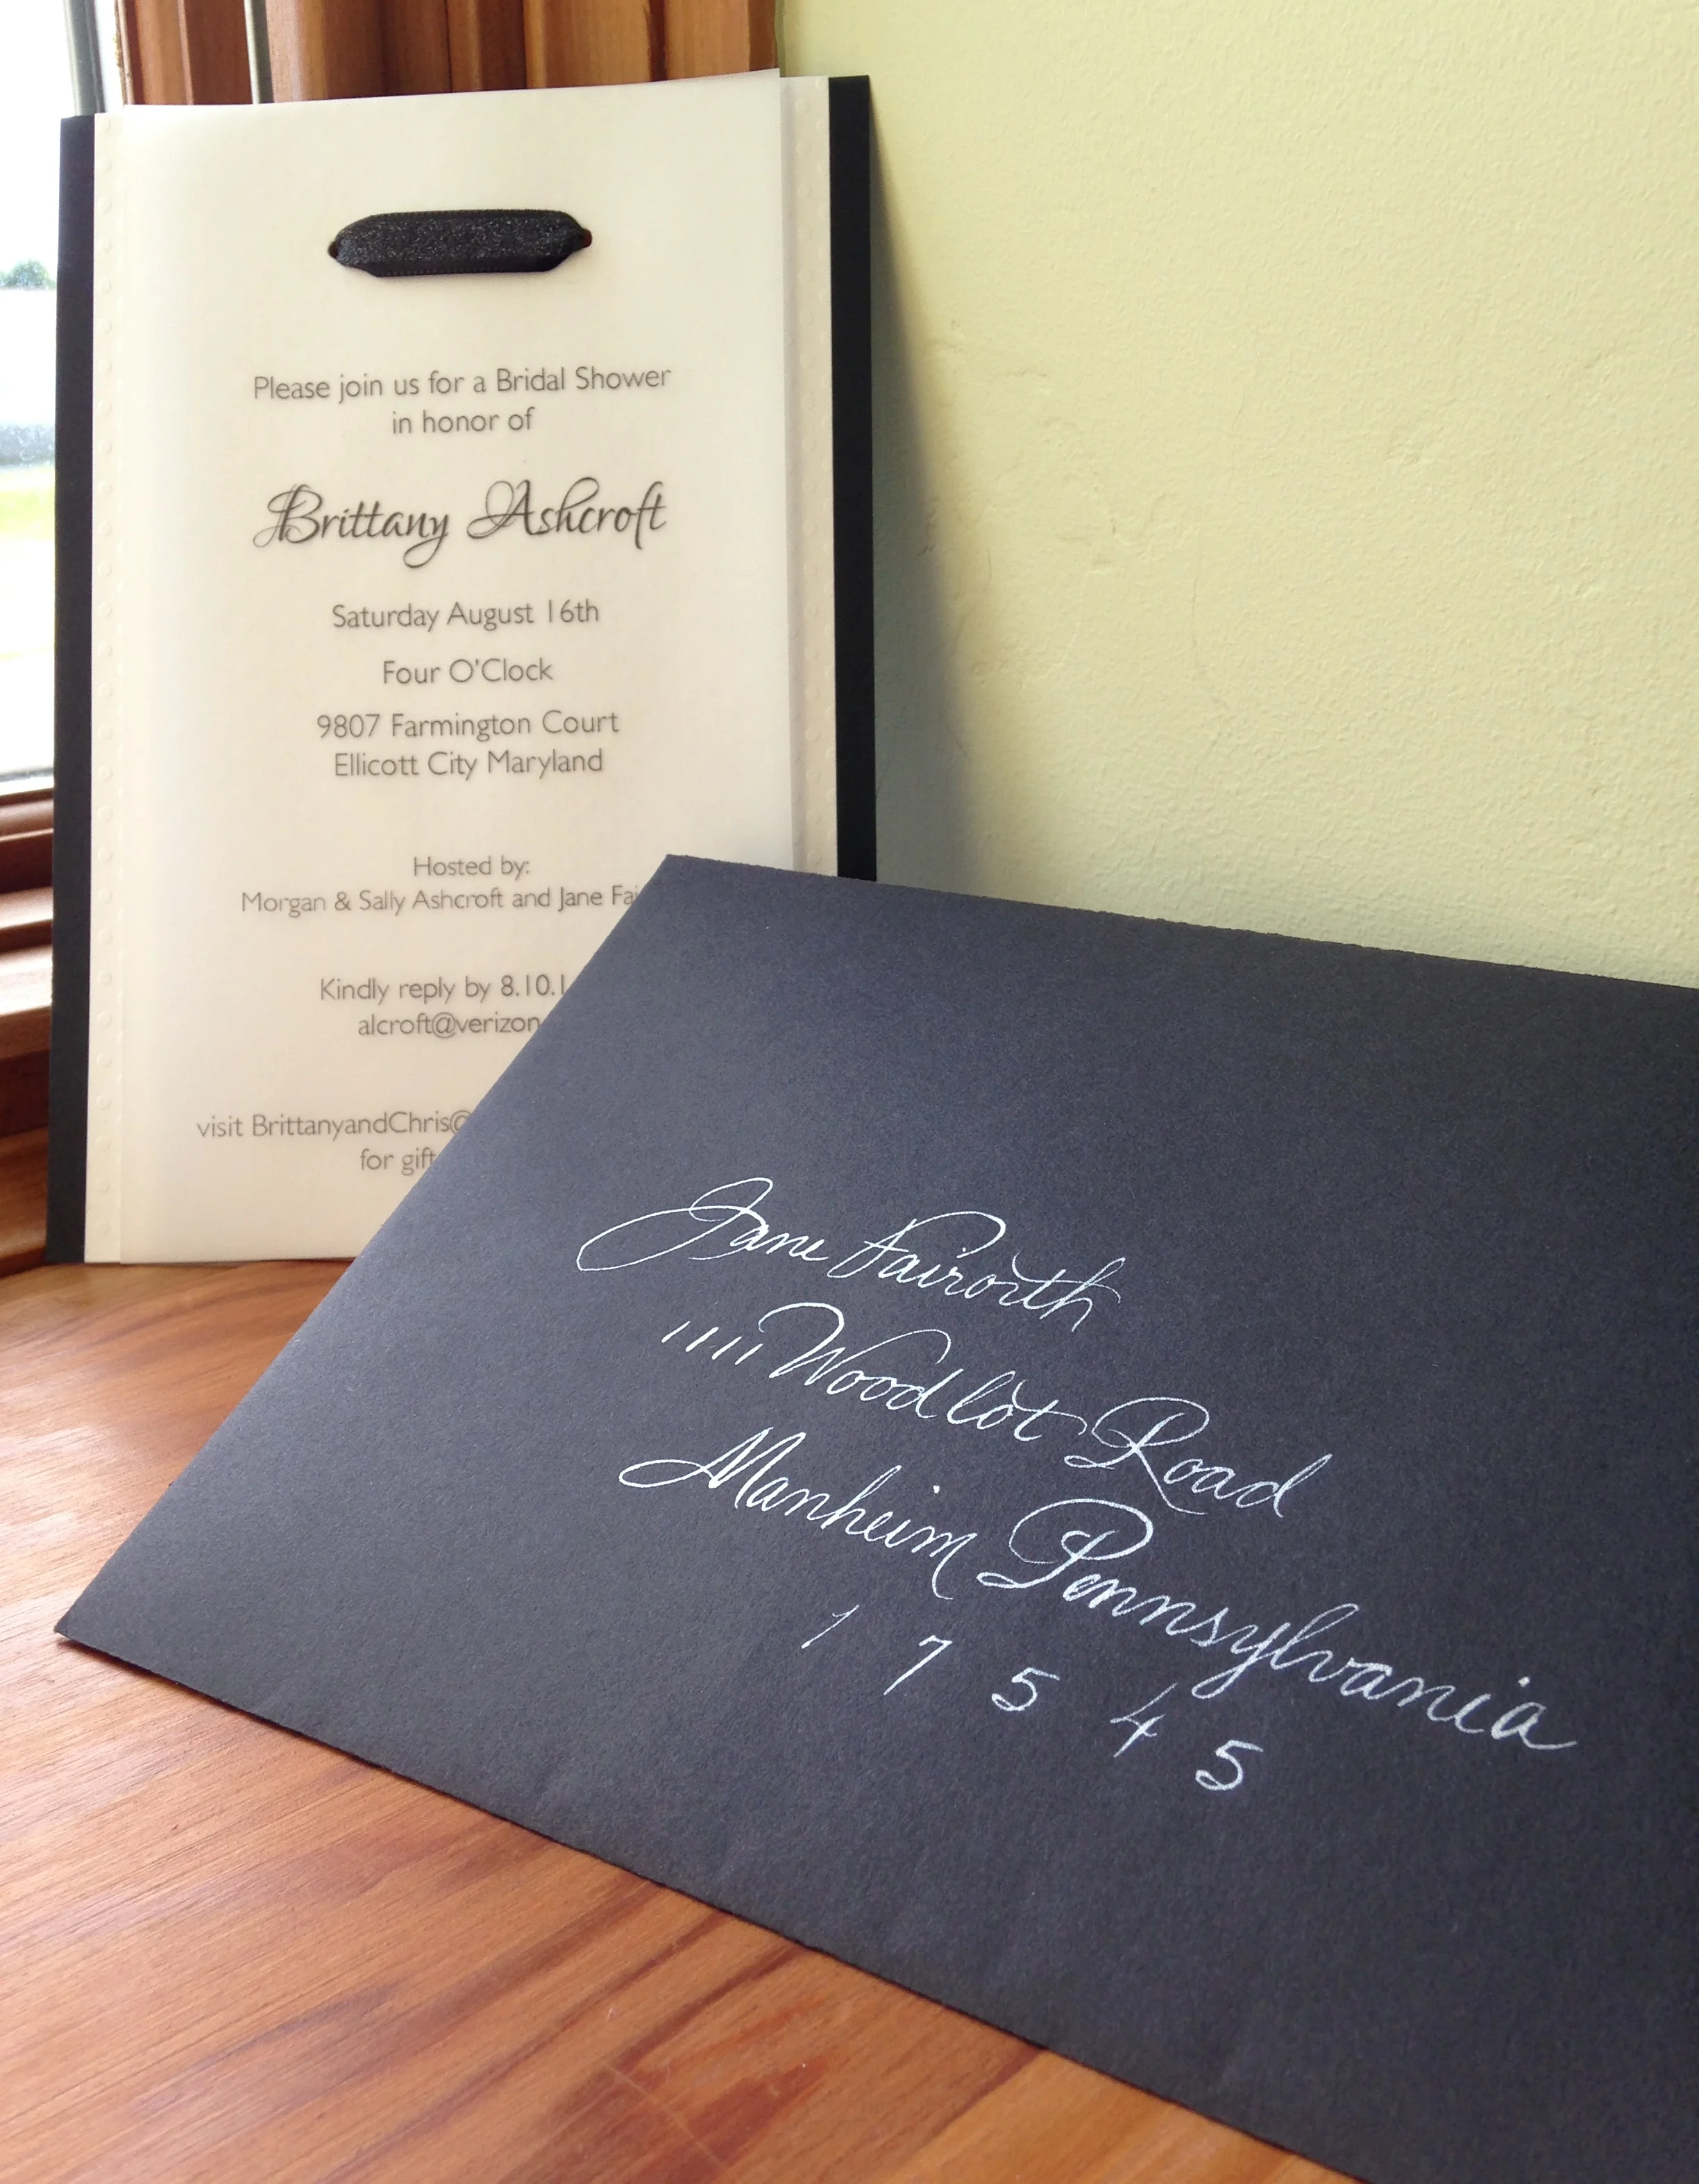 Please join us for a Bridal Shower
in honor of
Brittany Ashcroft
Saturday August 16th
Four O'Clock
9807 Farmington Court
Ellicott City Maryland
Hosted by:
Morgan & Sally Ashcroft and Jane
Kindly reply by
alcroft@verizon
visit BrittanyandChris@
for gift
Jane Fairorth
1111 Woodlot Road
Manheim Pennsylvania
1 7 5 4 5